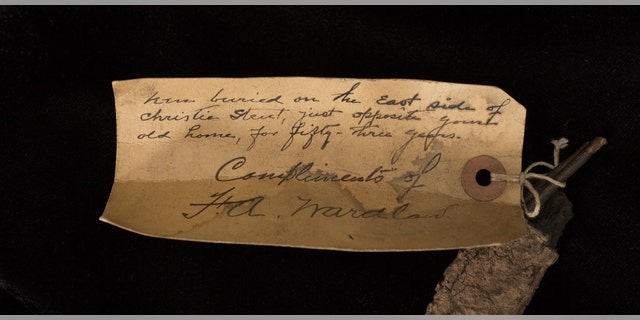 was buried on the East side of
Christie Street, just opposite your
old home, for fifty-three years.
Compliments of
F.A. Wardlaw